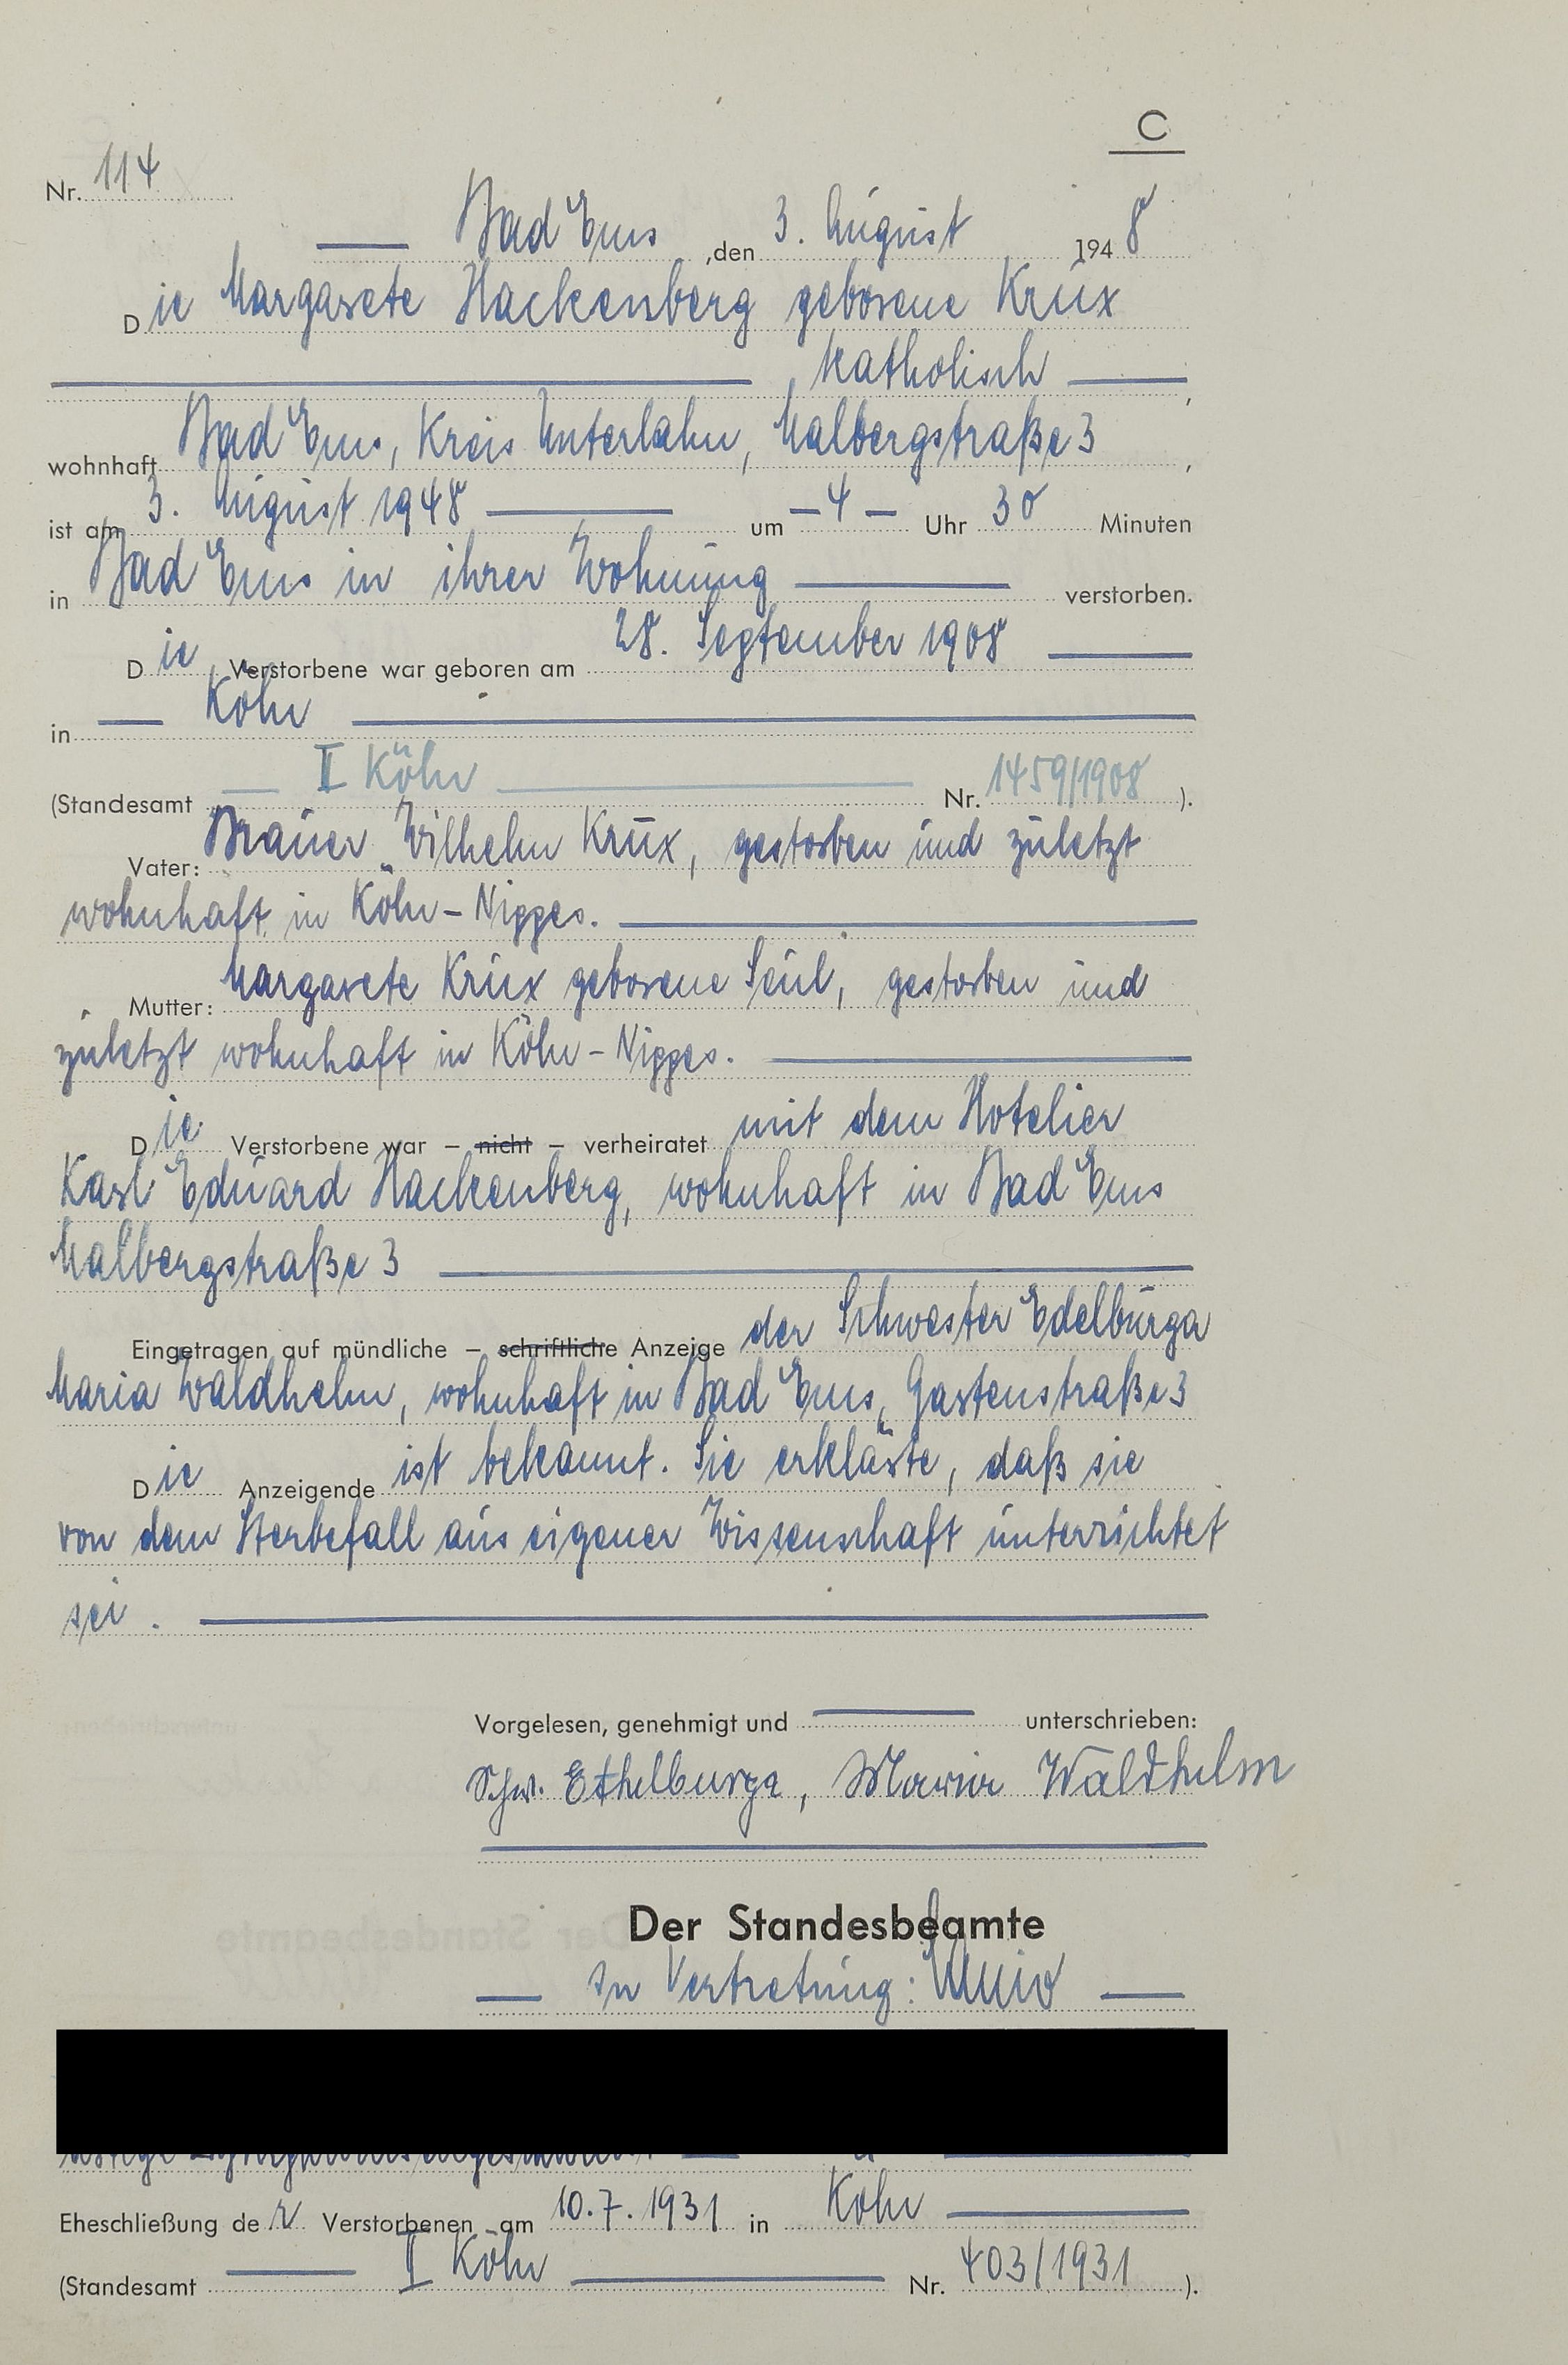 C
Nr. 114
Bad Ems, den 3. August 1948
Die Margarete Hackenberg geborene Krux
, katholisch ,
wohnhaft Bad Ems, Kreis Unterlahn, Malbergstraße 3 ,
ist am 3. August 1948 um – 4 – Uhr 30 Minuten
in Bad Ems in ihrer Wohnung verstorben.
Die Verstorbene war geboren am 28. September 1908
in Köln
(Standesamt I Köln Nr. 1459/1908 ).
Vater: Brauer Wilhelm Krux, gestorben und zuletzt
wohnhaft in Köln-Nippes.
Mutter: Margarete Krux geborene Seul, gestorben und
zuletzt wohnhaft in Köln-Nippes.
Die Verstorbene war – nicht – verheiratet mit dem Hotelier
Karl Eduard Hackenberg, wohnhaft in Bad Ems
Malbergstraße 3
Eingetragen auf mündliche – schriftliche Anzeige der Schwester Edelburga
Maria Waldhelm, wohnhaft in Bad Ems, Gartenstraße 3
Die Anzeigende ist bekannt. Sie erklärte, daß sie
von dem Sterbefall aus eigener Wissenschaft unterrichtet
sei.
Vorgelesen, genehmigt und unterschrieben:
Schw. Ethelburga, Maria Waldhelm
Der Standesbeamte
In Vertretung:
Eheschließung der Verstorbenen am 10.7.1931 in Köln
(Standesamt I Köln Nr. 403/1931 ).